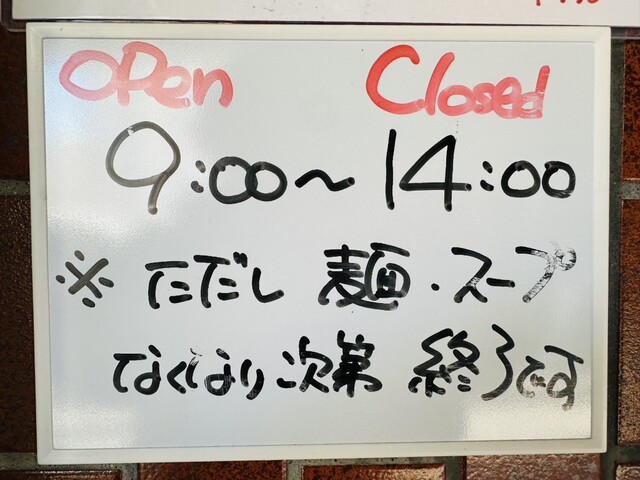 OPen Closed
9:00～14:00
※ ただし 麺・スープ
なくなり次第 終了です